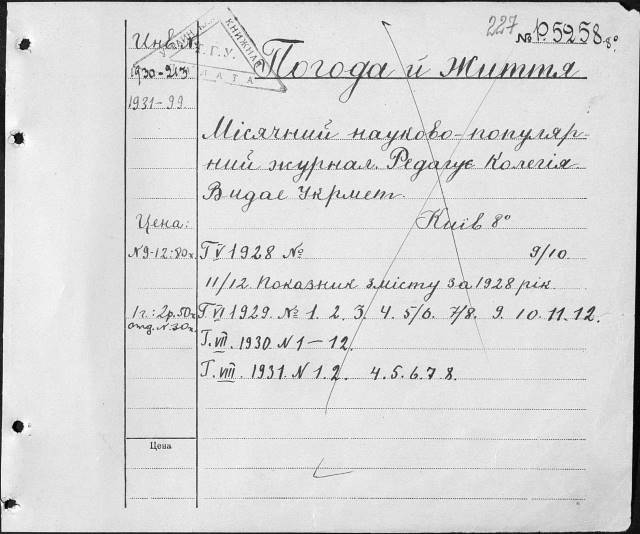 227 № P.5258 8°
Инв. №
УКРАИН КНИЖНАЯ
Г.Г.У.
ПАЛАТА
Погода й Життя
1930-213
1931-99
Місячний науково-популяр-
ний журнал. Редагує Колегія
Видає Укрмет.
Київ 8°
Цена:
№9-12:80к. Т V 1928 № 9/10
11/12. Показник змісту за 1928 рік.
1г.:2р.50к. Т. VI 1929. № 1. 2. 3. 4. 5/6. 7/8. 9. 10. 11. 12.
отд.N.30к.
Т. VII. 1930. N 1-12.
Т. VIII. 1931. N 1. 2. 4. 5. 6. 7. 8.
Цена